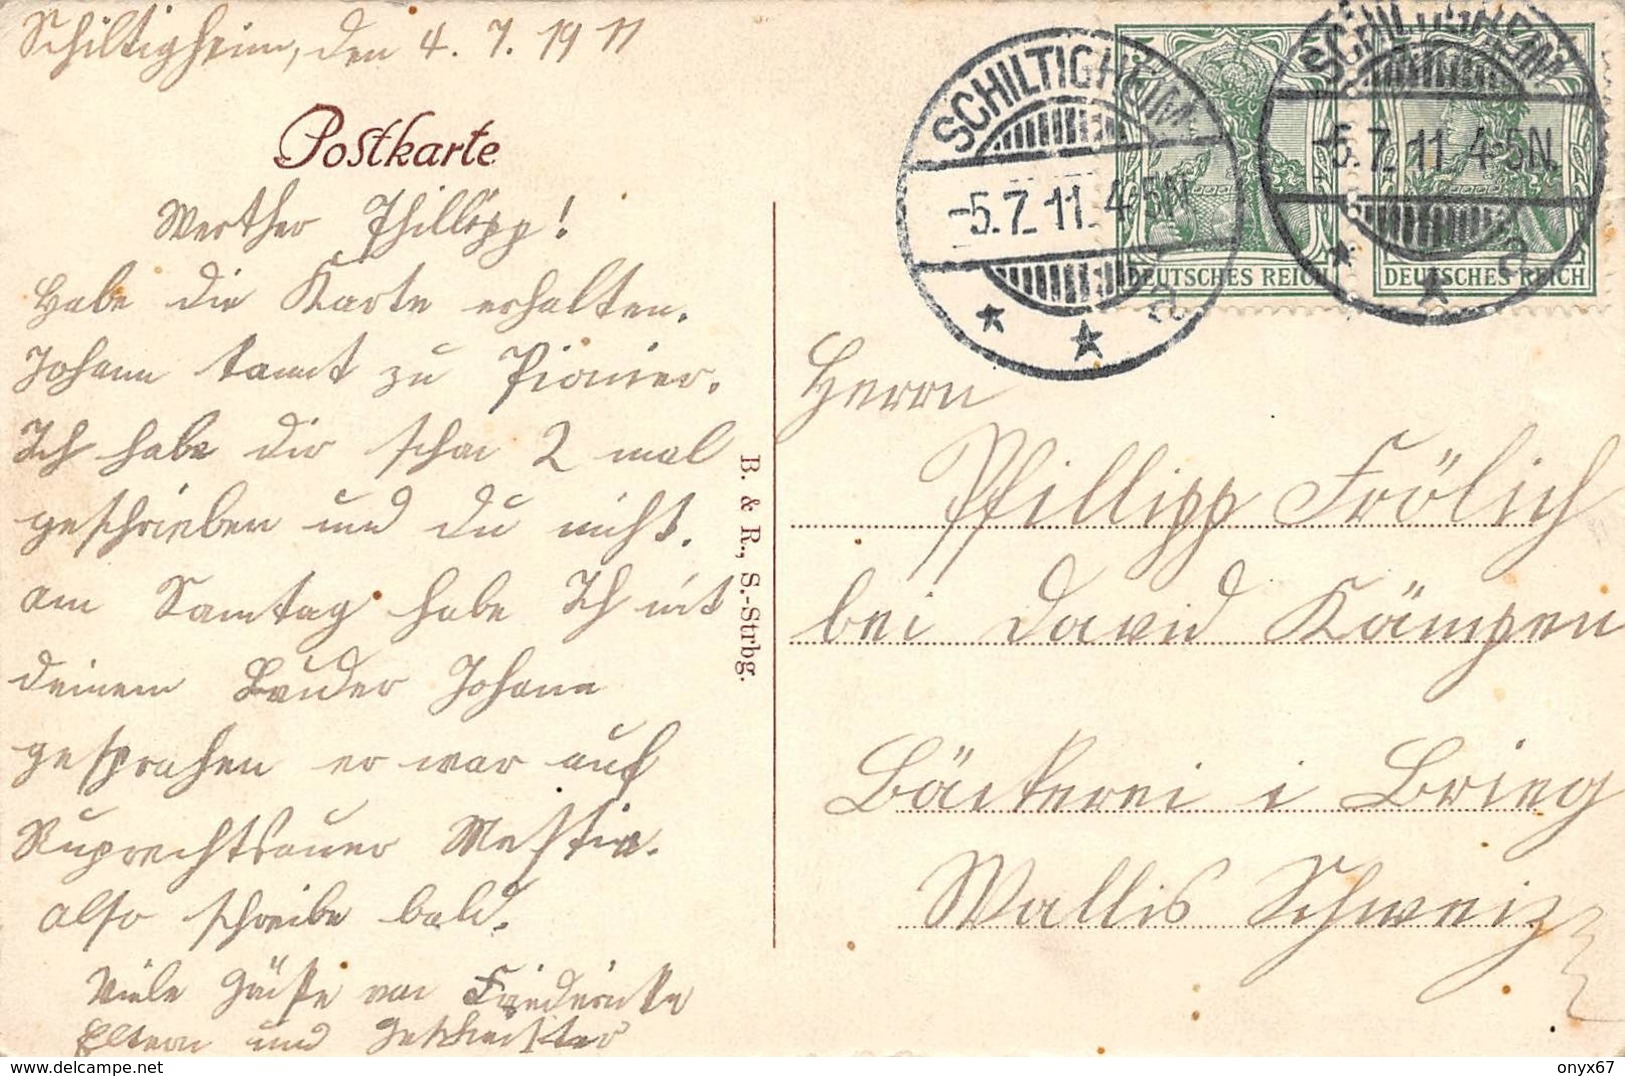 Schiltigheim, den 4. 7. 1911
Postkarte
Werther Phillipp!
Habe die Karte erhalten.
Johann kammt zu Pionier.
Ich habe dir schon 2 mal
geschrieben und du nicht.
am Samtag habe Ich mit
deinem Bruder Johann
gesprahen er war auf
Ruprechtsauer Messtin.
also schreibe bald.
Viele Grüße von Friedericke
Eltern und Geschwister
B. & R., S.-Strbg.
SCHILTIGHEIM
-5.7.11 4-5N.
a
SCHILTIGHEIM
-5.7.11 4-5N.
a
DEUTSCHES REICH
DEUTSCHES REICH
Herrn
Pfillipp Frölich
bei David Kämpfen
Bäckerei i Brieg
Wallis Schweiz
onyx67